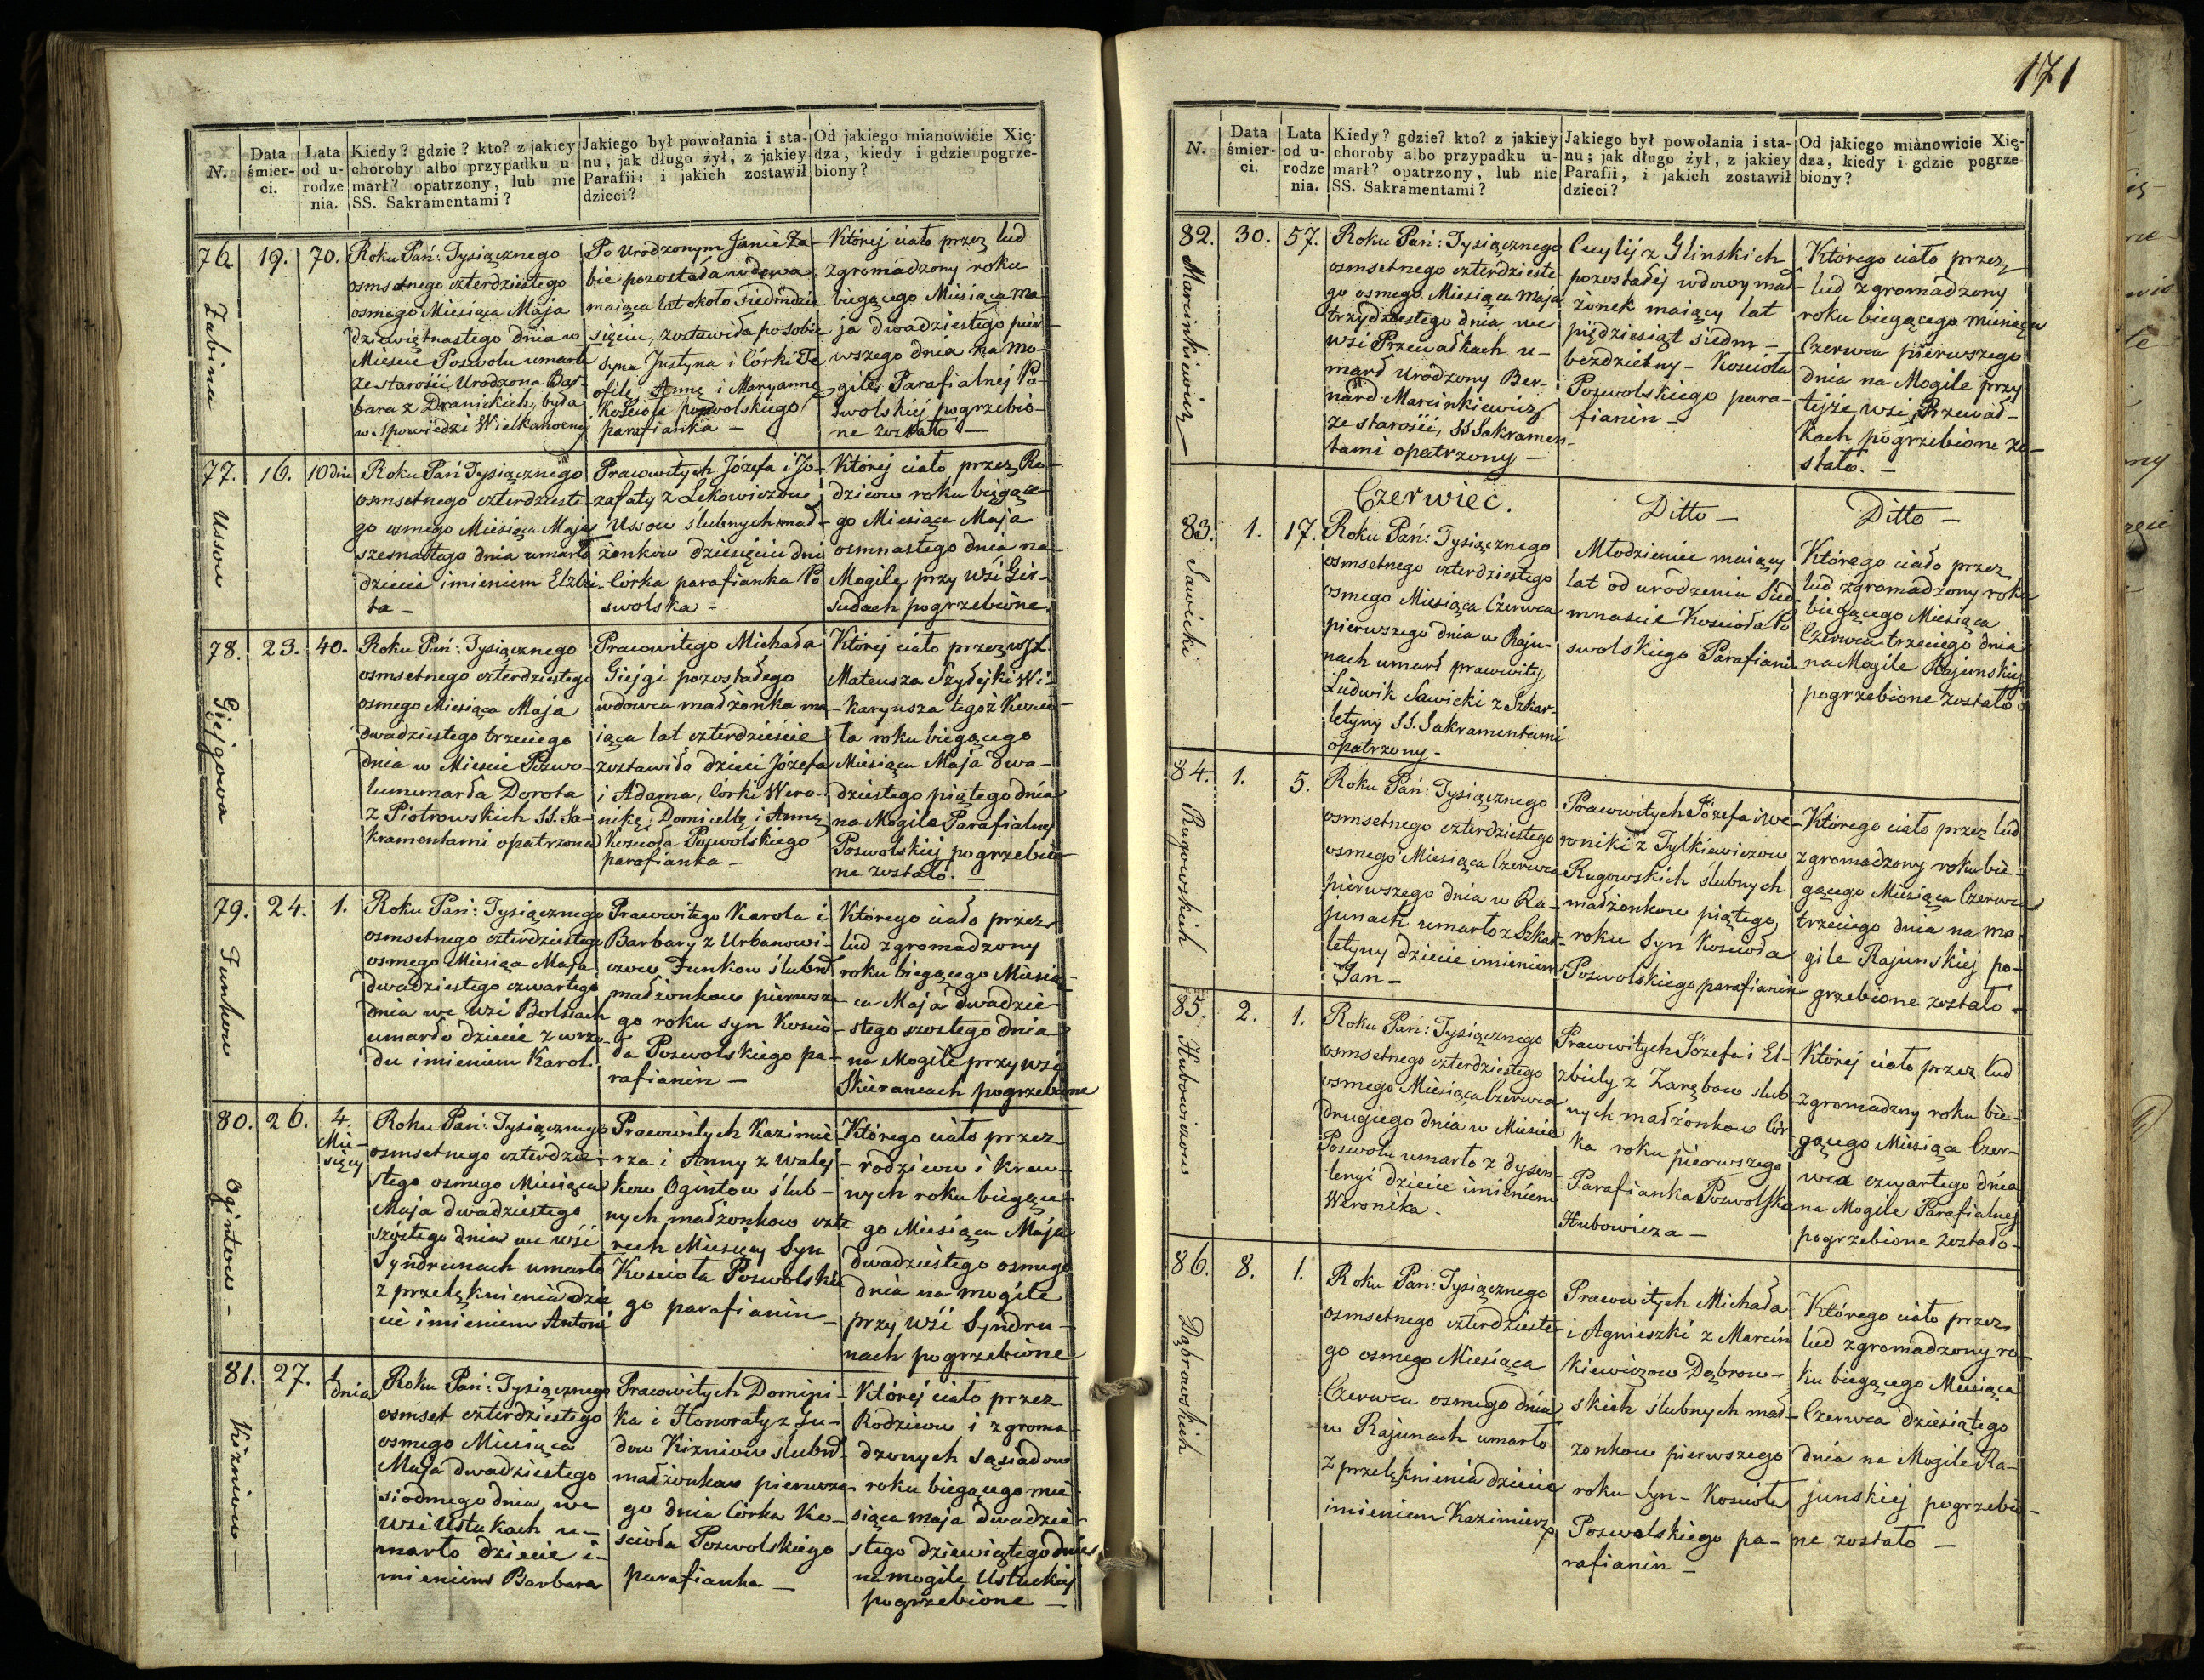 171
N.
Data śmierci.
Lata od urodzenia.
Kiedy? gdzie? kto? z jakiey
choroby albo przypadku u-
marł? opatrzony, lub nie
SS. Sakramentami?
Jakiego był powołania i sta-
nu, jak długo żył, z jakiey
Parafii; i jakich zostawił
dzieci?
Od jakiego mianowicie Xię-
dza, kiedy i gdzie pogrze-
biony?
76.
Zabina
19.
70.
Roku Pań: Tysiącznego
osmsetnego czterdziestego
osmego Miesiąca Maja
dziewiętnastego dnia w
Mieście Poswolu umarła
ze starości Urodzona Bar-
bara z Dranickich, była
w Spowiedzi Wielkanocnej
Po Urodzonym Janie Za-
bie pozostała wdowa,
maiąca lat około siedmdzie
sięciu, zostawiła po sobie
syna Justyna i Córki Te
ofilę, Annę i Maryannę
Kościoła poswolskiego
parafianka –
Której ciało przez lud
zgromadzony roku
biegącego Miesiąca Ma-
ja dwadziestego pier-
wszego dnia na Mo-
gile Parafialnej Po-
swolskiej pogrzebio-
ne zostało –
77.
Ussow
16.
10 dni
Roku Pań Tysiącznego
osmsetnego czterdzieste-
go osmego Miesiąca Maja
szesnastego dnia umarło
dziecie imieniem Elzbie-
ta –
Pracowitych Józefa i Jo-
zafaty z Lekowiczow
Ussow ślubnych mał-
żonkow dziesięciu dni
Corka parafianka Po
swolska –
Której ciało przez Ro-
dzicow roku biegące-
go Miesiąca Maja
osmnastego dnia na
Mogile przy Wsi Gir-
sudach pogrzebione.
78.
Giejgowa
23.
40.
Roku Pań: Tysiącznego
osmsetnego czterdziestego
osmego Miesiąca Maja
dwadziestego trzeciego
dnia w Miescie Poswo-
lu umarła Dorota
z Piotrowskich SS. Sa-
kramentami opatrzona
Pracowitego Michała
Giejgi pozostałego
wdowca małżonka ma-
iąca lat czterdzieście
zostawiła dzieci Józefa
i Adama, Córki Wero-
nikę, Domicellę i Annę
Kościoła Poswolskiego
parafianka –
Której ciało przez WJX.
Mateusza Szydejki Wi-
karyusza tegoż Koscio-
ła roku biegącego
Miesiąca Maja dwa-
dziestego piątego dnia
na Mogile Parafialnej
Poswolskiej pogrzebio-
ne zostało. –
79.
Funkow
24.
1.
Roku Pań: Tysiącznego
osmsetnego czterdziestego
osmego Miesiąca Maja
dwadziestego czwartego
dnia we Wsi Bolsiach
umarło dziecie z wrzo-
du imieniem Karol.
Pracowitego Karola i
Barbary z Urbanowi-
czow Funkow ślubn.
małżonkow pierwsze-
go roku syn Koscio-
ła Poswolskiego pa-
rafianin –
Którego ciało przez
lud zgromadzony
roku biegącego Miesią-
ca Maja dwadzie-
stego szostego dnia
na Mogile przy wsi
Skierancach pogrzebione
80.
Ogintow –
26.
4.
Mie-
sięcy
Roku Pań: Tysiącznego
osmsetnego czterdzie-
stego osmego Miesiąca
Maja dwadziestego
szóstego dnia we wsi
Syndrunach umarło
z przelęknienia dzie
cie imieniem Antoni
Pracowitych Kazimie-
rza i Anny z Walej-
kow Ogintow ślub-
nych małżonkow czte
rech Miesięcy Syn
Kosciota Poswolskie
go parafianin –
Którego ciało przez
rodzicow i krew-
nych roku biegące-
go Miesiąca Maja
dwadziestego osmego
dnia na mogile
przy Wsi Syndru-
nach pogrzebione
81.
Kizniow –
27.
1
dnia
Roku Pań: Tysiącznego
osmset czterdziestego
osmego Miesiąca
Maja dwadziestego
siodmego dnia we
Wsi Ustukach u-
marło dziecie i-
mieniem Barbara
Pracowitych Domini-
ka i Honoraty z Ju-
dow Kizniow slubn.
małżonkow pierwsze-
go dnia Córka Ko-
ścioła Poswolskiego
parafianka –
Której ciało przez
Rodzicow i zgroma
dzonych sąsiadow
roku biegącego mie-
siąca maja dwadzie-
stego dziewiątego dnia
na mogile Ustuckiej
pogrzebione –
N.
Data śmierci.
Lata od urodzenia.
Kiedy? gdzie? kto? z jakiey
choroby albo przypadku u-
marł? opatrzony, lub nie
SS. Sakramentami?
Jakiego był powołania i sta-
nu; jak długo żył, z jakiey
Parafii, i jakich zostawił
dzieci?
Od jakiego miànowicie Xię-
dza, kiedy i gdzie pogrze
biony?
82.
Marcinkiewicz –
30.
57.
Roku Pań: Tysiącznego
osmsetnego czterdzieste-
go osmego Miesiąca Maja
trzydziestego dnia we
wsi Przewałkach u-
marł Urodzony Ber-
nard Marcinkiewicz
ze starości, SS Sakramen-
tami opatrzony –
Cecylij z Glinskich
pozostałej wdowy mał-
żonek maiący lat
pięćdziesiąt siedm –
bezdzietny – Kosciola
Poswolskiego para-
fianin –
Którego ciało przez
lud zgromadzony
roku biegącego miesiąca
Czerwca pierwszego
dnia na Mogile przy
tejże wsi Przewał-
kach pogrzebione zo-
stało. –
Czerwiec.
Ditto –
Ditto –
83.
Sawicki
1.
17.
Roku Pań: Tysiącznego
osmsetnego czterdziestego
osmego Miesiąca Czerwca
pierwszego dnia w Raju-
nach umarł pracowity
Ludwik Sawicki z Szkar-
letyny SS. Sakramentami
opatrzony –
Młodzieniec maiący
lat od urodzenia Sied-
mnaście Kosciola Po
swolskiego Parafianin
Którego ciało przez
lud zgromadzony roku
biegącego Miesiąca
Czerwca trzeciego dnia
na Mogile Rajunskiej
pogrzebione zostało.
84.
Rugowskich
1.
5.
Roku Pań: Tysiącznego
osmsetnego czterdziestego
osmego Miesiąca Czerwca
pierwszego dnia w Ra-
junach umarło z Szkar-
letyny dziecie imieniem
Jan –
Pracowitych Józefa i We-
roniki z Tylkiewiczow
Rugowskich ślubnych
małżonkow piątego
roku Syn Kościoła
Poswolskiego parafianin
Którego ciało przez lud
zgromadzony roku bie-
gącego Miesiąca Czerwca
trzeciego dnia na mo-
gile Rajunskiej po-
grzebione zostało –
85.
Hubowiczow
2.
1.
Roku Pań: Tysiącznego
osmsetnego czterdziestego
osmego Miesiąca Czerwca
drugiego dnia w Miescie
Poswolu umarło z dysen-
teryi dziecie imieniem
Weronika –
Pracowitych Józefa i El-
zbiety z Zarębow slub-
nych małżonkow Cór
ka roku pierwszego
Parafianka Poswolska
Hubowicza –
Której ciało przez lud
zgromadzony roku bie-
gącego Miesiąca Czer-
wca czwartego dnia
na Mogile Parafialnej
pogrzebione zostało –
86.
Dąbrowskich
8.
1.
Roku Pań: Tysiącznego
osmsetnego czterdzieste-
go osmego Miesiąca
Czerwca osmego dnia
w Rajunach umarło
z przelęknienia dziecie
imieniem Kazimierz
Pracowitych Michała
i Agnieszki z Marcin
kiewiczow Dąbrow-
skich ślubnych mał-
zonkow pierwszego
roku Syn – Kosciola
Poswolskiego pa-
rafianin –
Którego ciało przez
lud zgromadzony ro-
ku biegącego Miesiąca
Czerwca dziesiątego
dnia na Mogile Ra-
junskiej pogrzebio-
ne zostało –